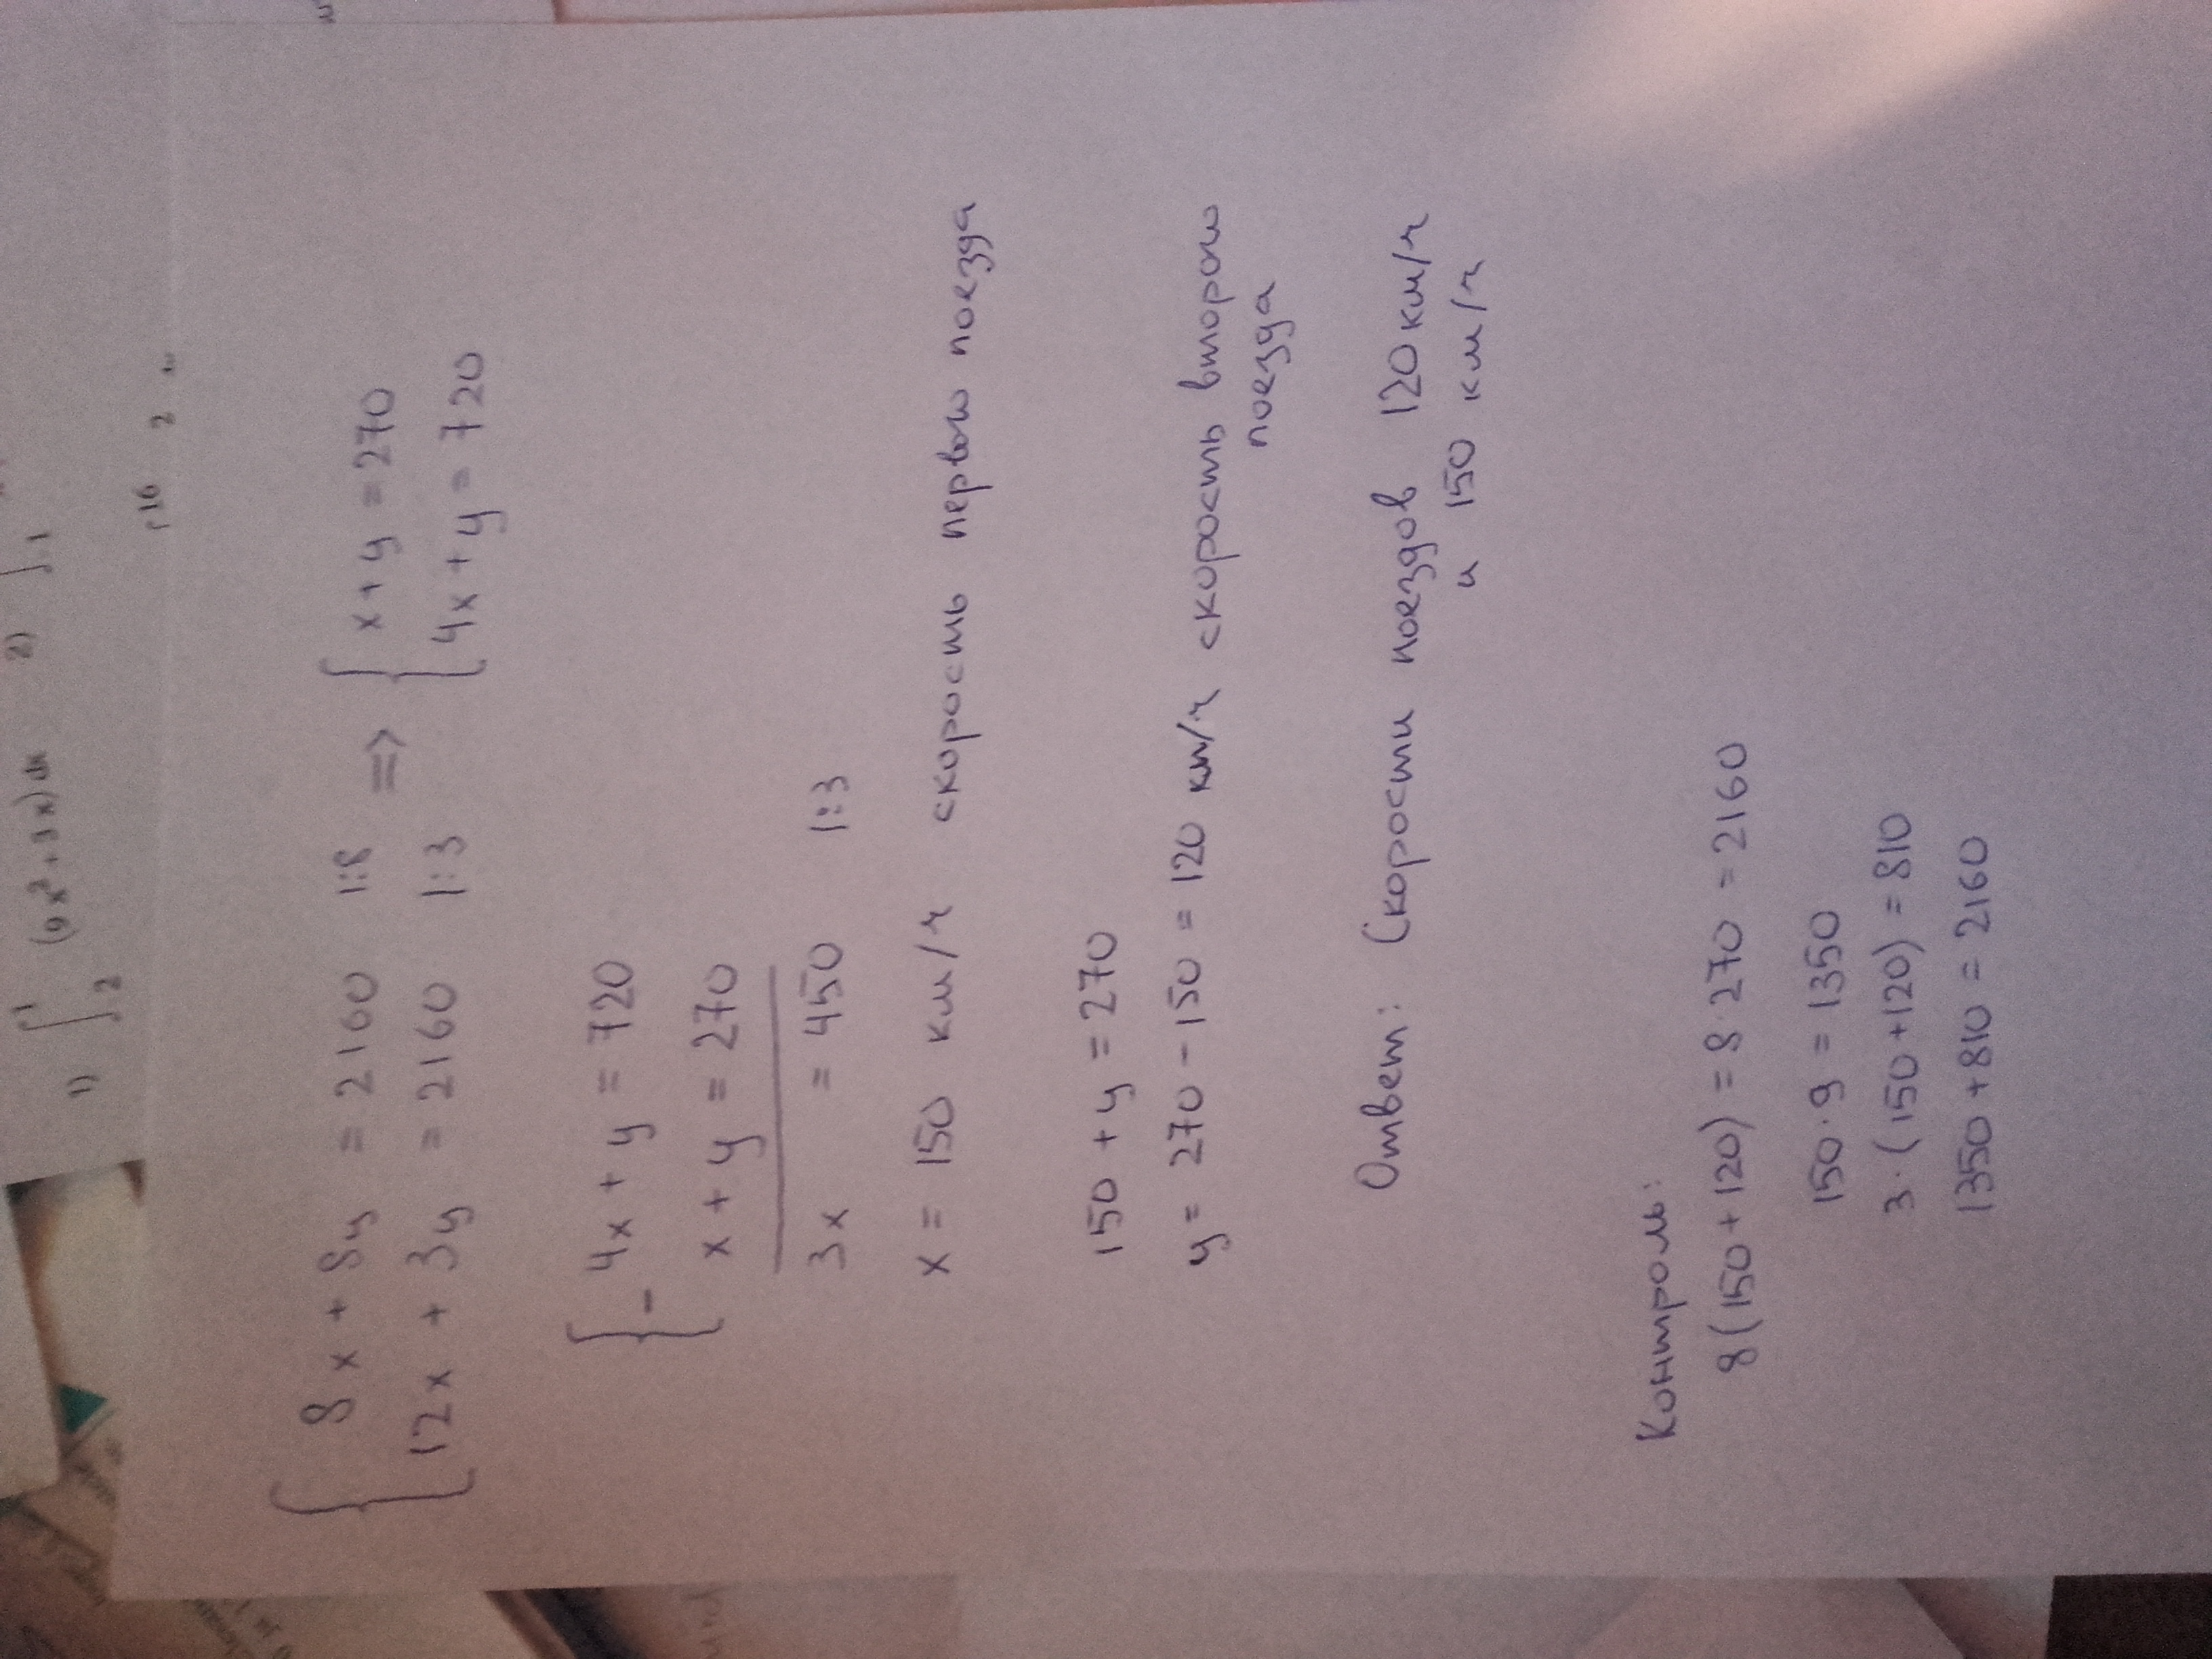 1) ∫₂¹ (9x²+3x)dx 2) ∫₁
16 2
{ 8x + 8y = 2160 |:8 => { x+y = 270
12x + 3y = 2160 |:3 4x+y = 720
{ - 4x + y = 720
x + y = 270
3x = 450 |:3
x = 150 км/ч скорость первого поезда
150 + y = 270
y = 270 - 150 = 120 км/ч скорость второго
поезда
Ответ: Скорости поездов 120 км/ч
и 150 км/ч
Контроль:
8(150+120) = 8·270 = 2160
150·9 = 1350
3·(150+120) = 810
1350+810 = 2160